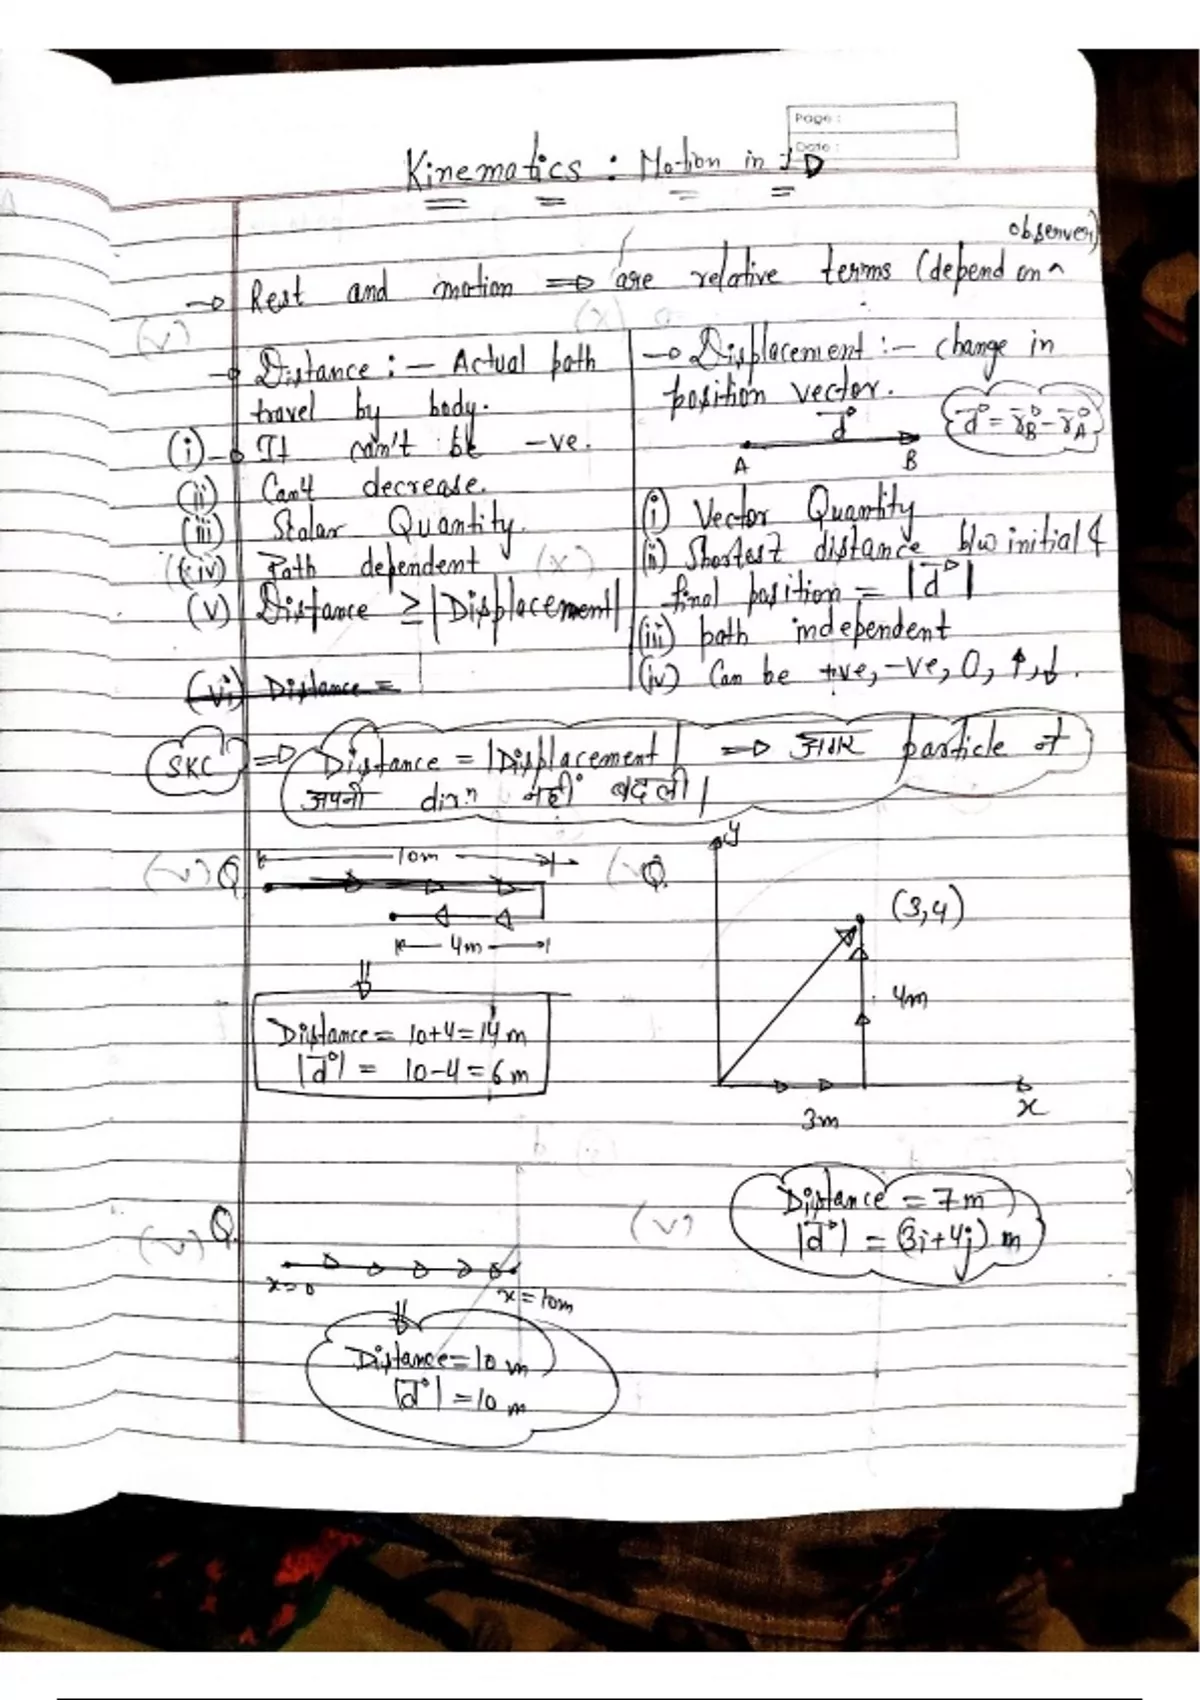 Page :
Date :
Kinematics : Motion in 1D
observer)
→ Rest and motion ⇒ are relative terms (depend on ^
→ Distance :- Actual path
travel by body.
(i) → It can't be -ve.
(ii) Can't decrease.
(iii) Scalar Quantity.
(iv) Path dependent
(v) Distance ≥ |Displacement|
(vi) Distance =
→ Displacement :- change in
position vector.
d
d = r_B - r_A
A B
(i) Vector Quantity
(ii) Shortest distance b/w initial &
final position = |d|
(iii) path independent
(iv) Can be +ve, -ve, 0, ↑, ↓.
SKC ⇒ Distance = |Displacement| ⇒ अगर particle ने
अपनी dirⁿ नहीं बदली |
Q. 10m
4m
Distance = 10+4 = 14 m
|d| = 10-4 = 6 m
Q. y
(3,4)
4m
3m
x
Distance = 7 m
|d| = (3i+4j) m
Q.
x=0 x=10m
Distance = 10 m
|d| = 10 m